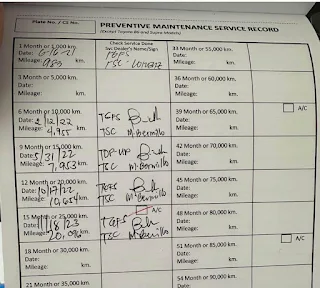 Plate No. / CS No.
PREVENTIVE MAINTENANCE SERVICE RECORD
(Except Toyota 86 and Supra Models)
1 Month or 1,000 km.
Date: 6-16-21
Mileage: 983 km.
Check Service Done
Svc Dealer's Name/Sign
TGFS
TSC-
33 Month or 55,000 km.
Date:
Mileage: km.
3 Month or 5,000 km.
Date:
Mileage: km.
36 Month or 60,000 km.
Date:
Mileage: km.
6 Month or 10,000 km.
Date: 2/12/22
Mileage: 4,955 km.
TGFS
TSC M. Bermillo
39 Month or 65,000 km.
Date:
Mileage: km.
A/C
9 Month or 15,000 km.
Date: 5/31/22
Mileage: 7,953 km.
TOP-UP
TSC M. Bermillo
42 Month or 70,000 km.
Date:
Mileage: km.
12 Month or 20,000 km.
Date: 10/17/22
Mileage: 10,654 km.
TGFS
TSC M. Bermillo
45 Month or 75,000 km.
Date:
Mileage: km.
15 Month or 25,000 km.
Date: 11/18/23
Mileage: 20,096 km.
A/C
TGFS
TSC M. Bermillo
48 Month or 80,000 km.
Date:
Mileage: km.
18 Month or 30,000 km.
Date:
Mileage: km.
51 Month or 85,000 km.
Date:
Mileage: km.
A/C
21 Month or 35,000 km.
54 Month or 90,000 km.